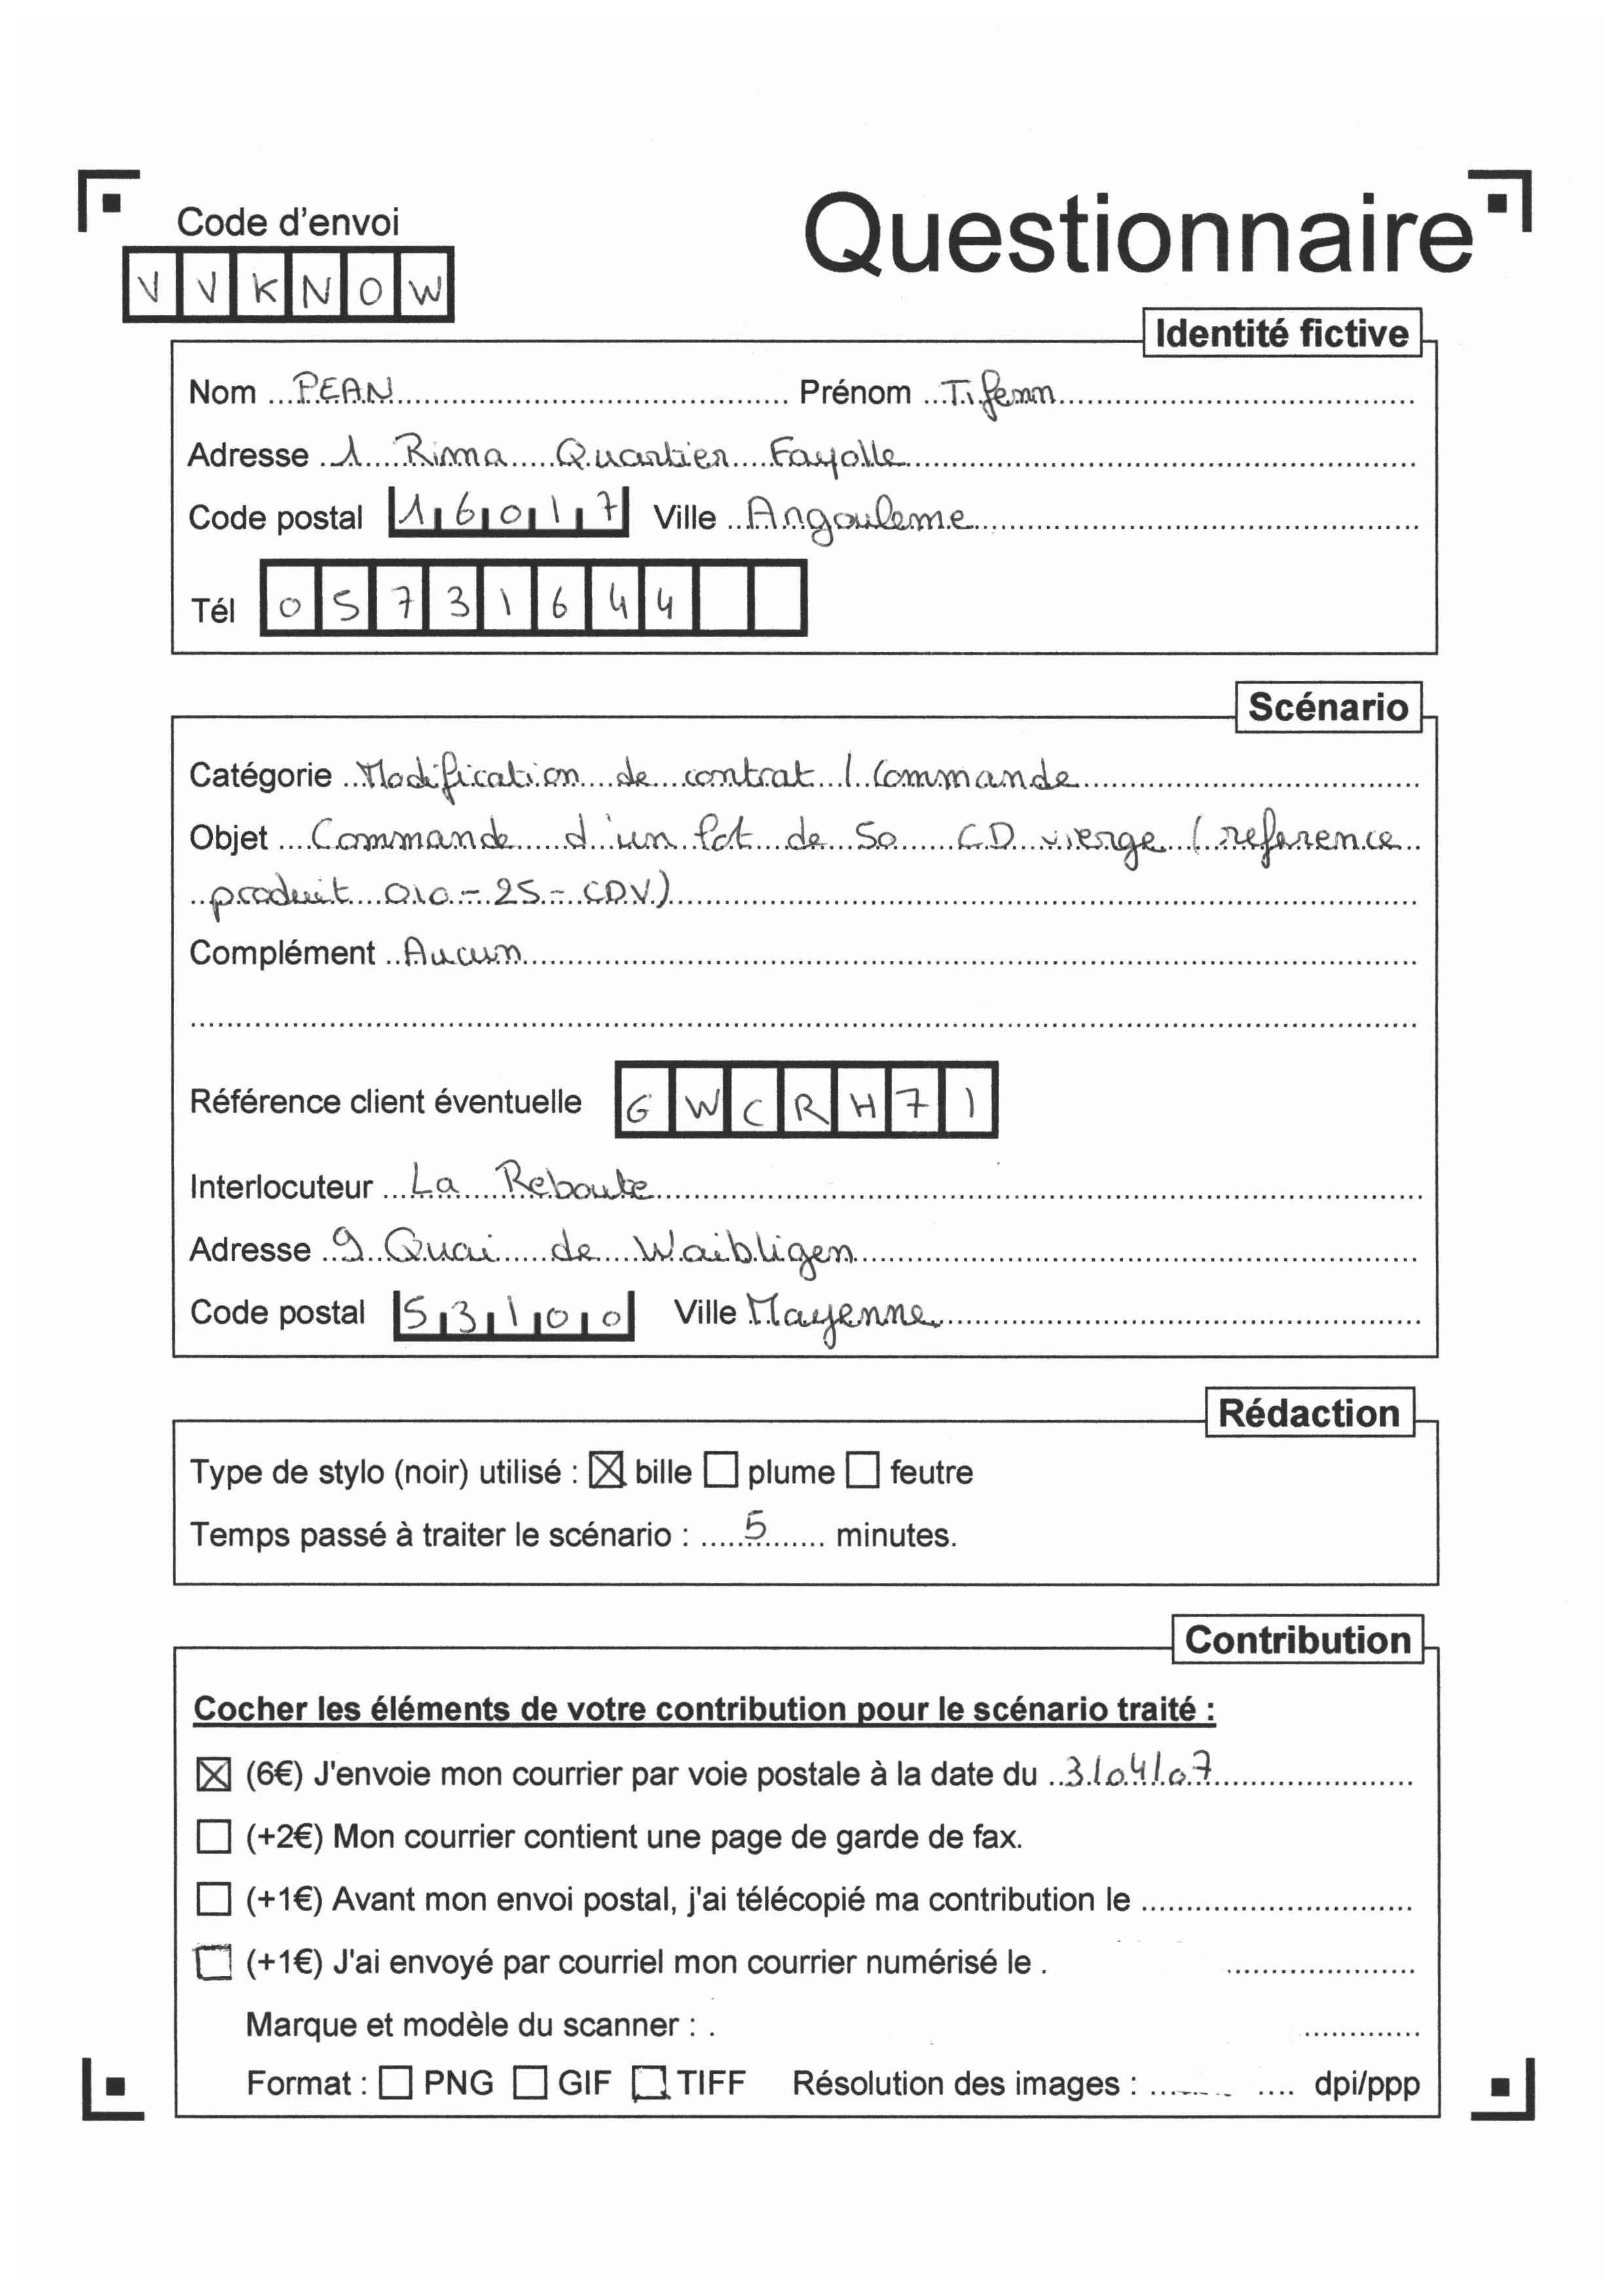 Code d'envoi
VVKNOW
Questionnaire
Identité fictive
Nom PEAN Prénom Tifenn
Adresse 1 Rima Quartier Fayolle
Code postal 16017 Ville Angouleme
Tél 05731644
Scénario
Catégorie Modification de contrat / Commande
Objet Commande d'un lot de 50 CD vierge (reference
produit 010-25-CDV)
Complément Aucun
Référence client éventuelle GWCRH71
Interlocuteur La Reboute
Adresse 9 Quai de Waibligen
Code postal 53100 Ville Mayenne
Rédaction
Type de stylo (noir) utilisé : bille plume feutre
Temps passé à traiter le scénario : 5 minutes.
Contribution
Cocher les éléments de votre contribution pour le scénario traité :
(6€) J'envoie mon courrier par voie postale à la date du 3/04/07
(+2€) Mon courrier contient une page de garde de fax.
(+1€) Avant mon envoi postal, j'ai télécopié ma contribution le
(+1€) J'ai envoyé par courriel mon courrier numérisé le
Marque et modèle du scanner :
Format : PNG GIF TIFF Résolution des images : dpi/ppp